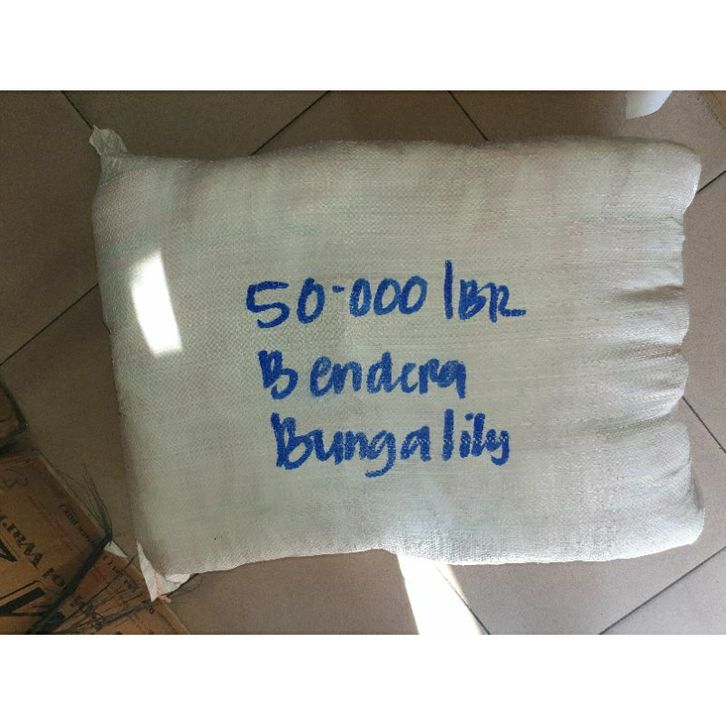 50-000 lBR
Bendera
Bungalily